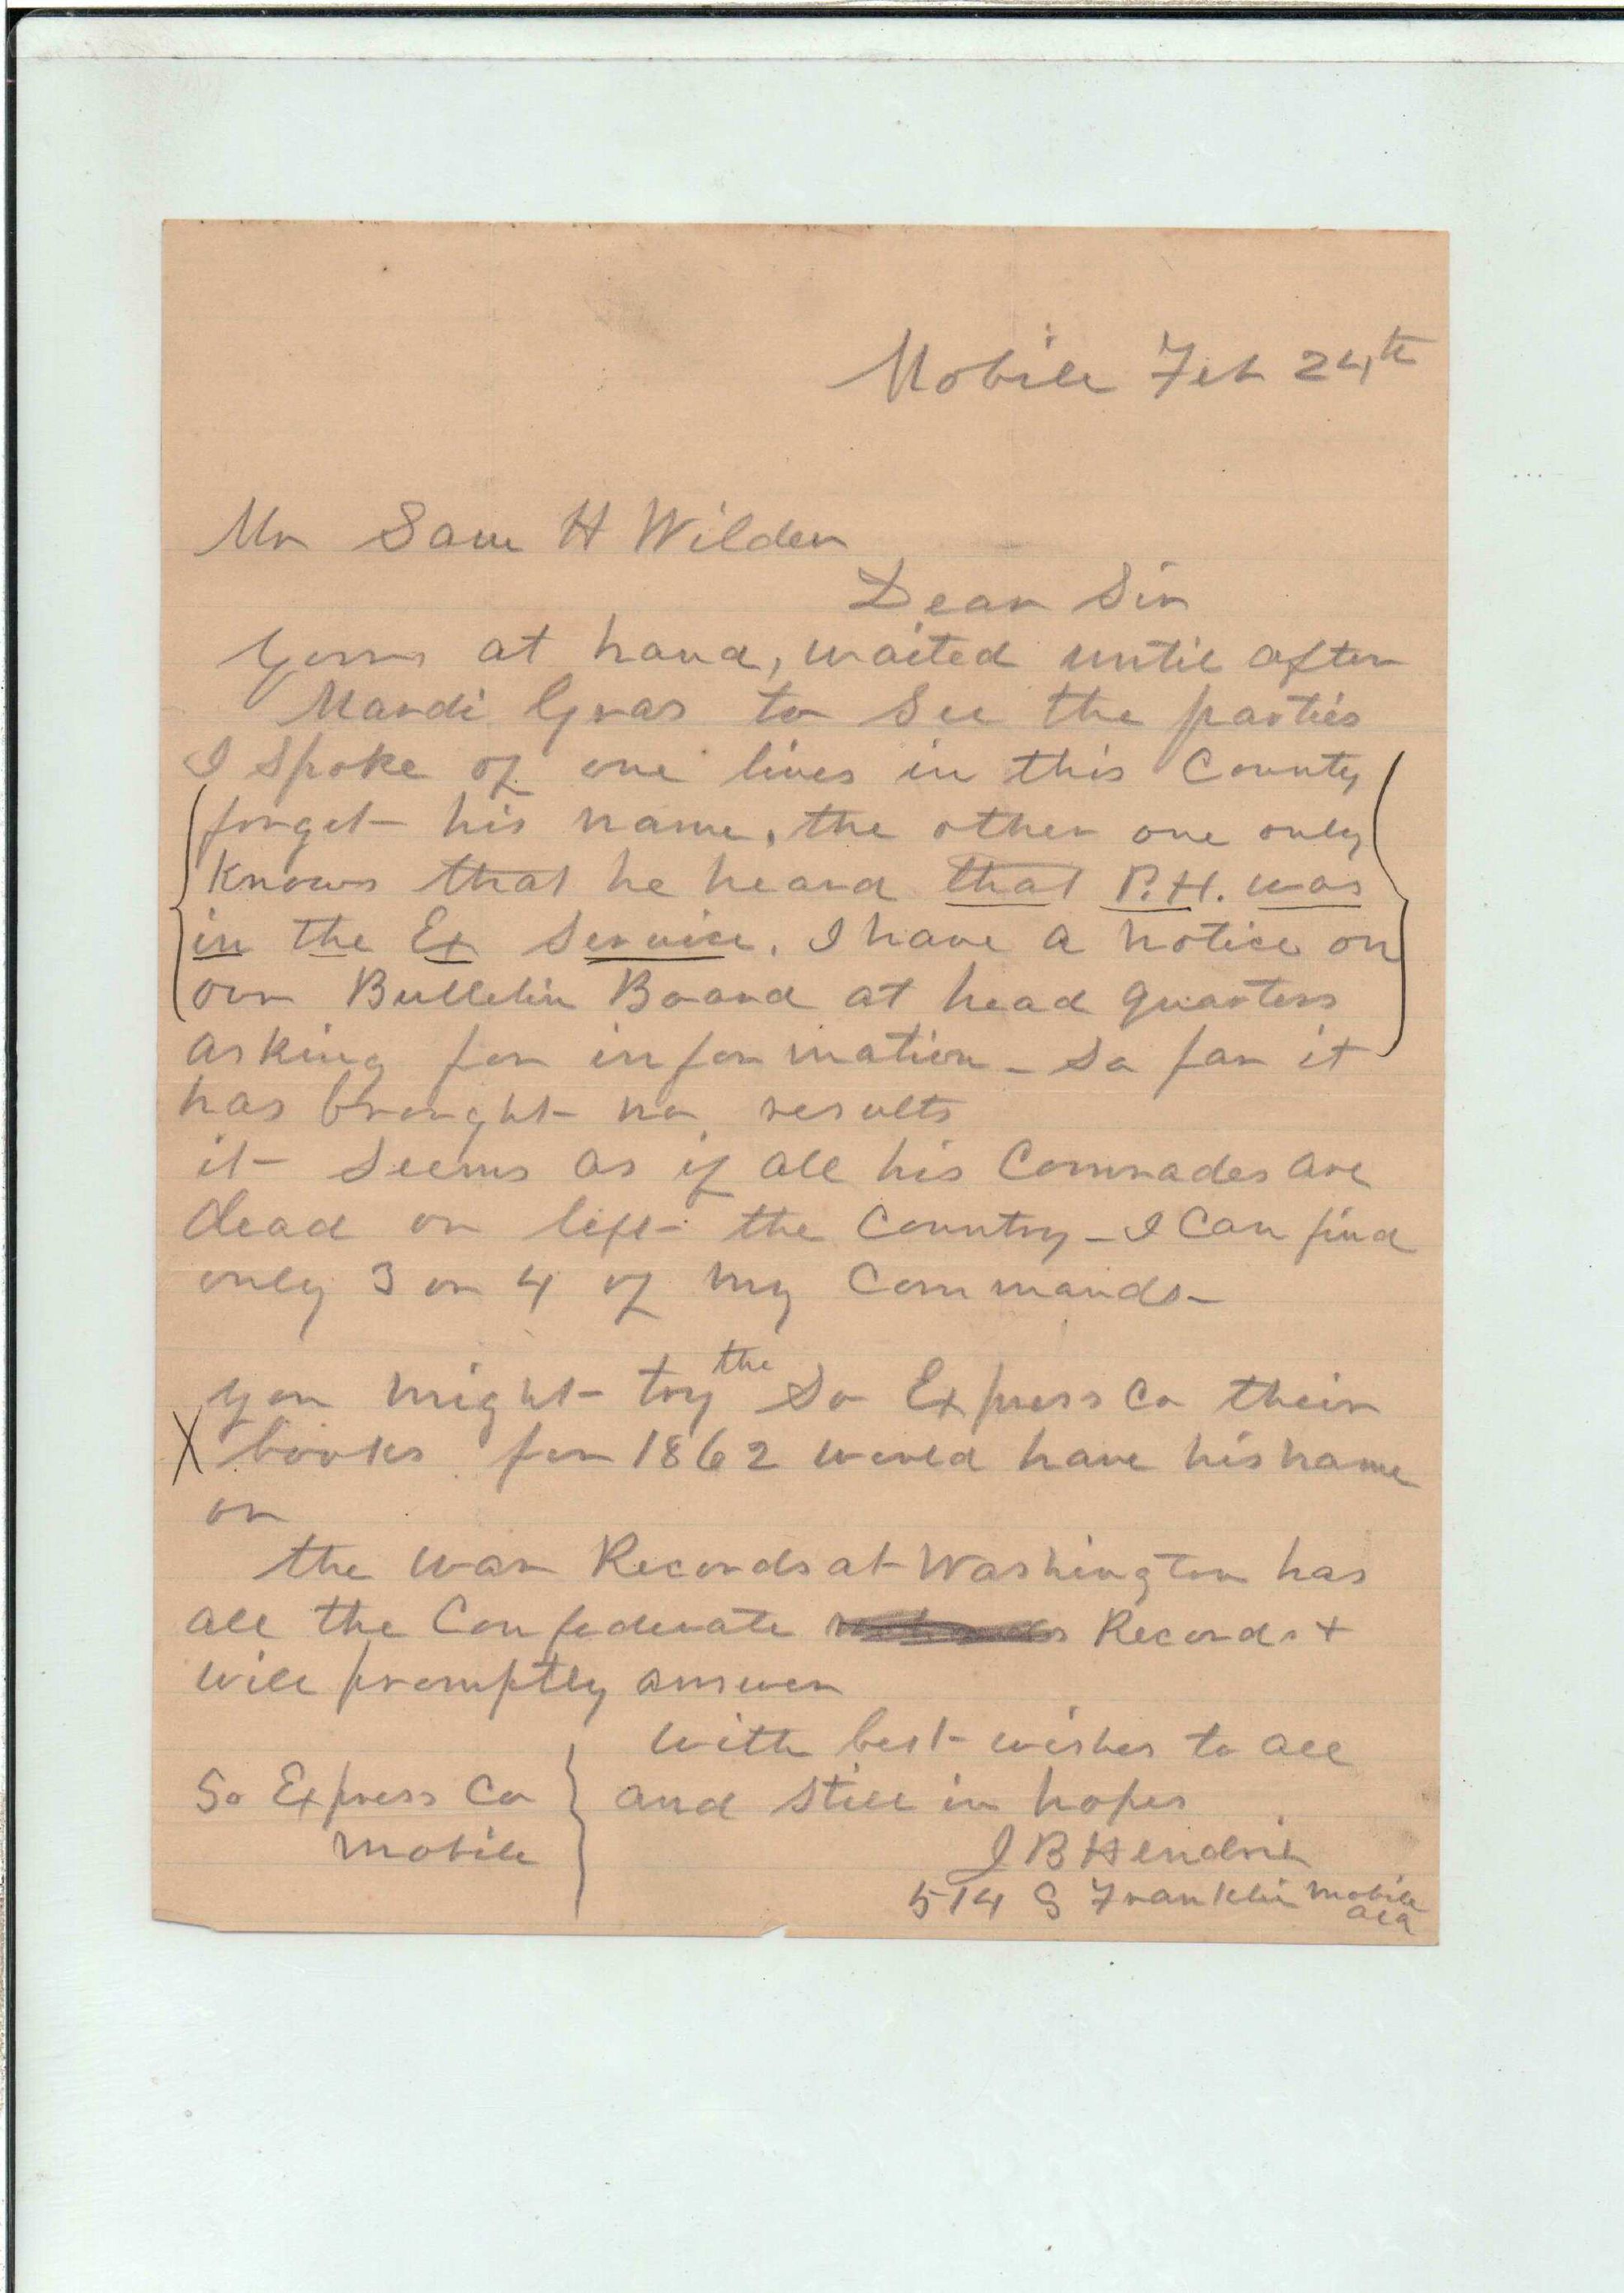 Mobile Feb 24th
Mr Sam H Wilder
Dear Sir
Yours at hand, waited until after
Mardi Gras to See the parties
I Spoke of one lives in this County
forget his name, the other one only
Knows that he heard that P.H. was
in the Ex Service. I have a notice on
our Bulletin Board at head quarters
asking for information - So far it
has brought no results
it seems as if all his Comrades are
dead or left the Country - I Can find
only 3 or 4 of my Commands -
you might try the So Express Co their
X books for 1862 would have his name
on
the War Records at Washington has
all the Confederate Records +
will promptly answer
with best wishes to all
and still in hopes
So Express Co
Mobile
J B Hendrix
514 S Franklin Mobile
Ala